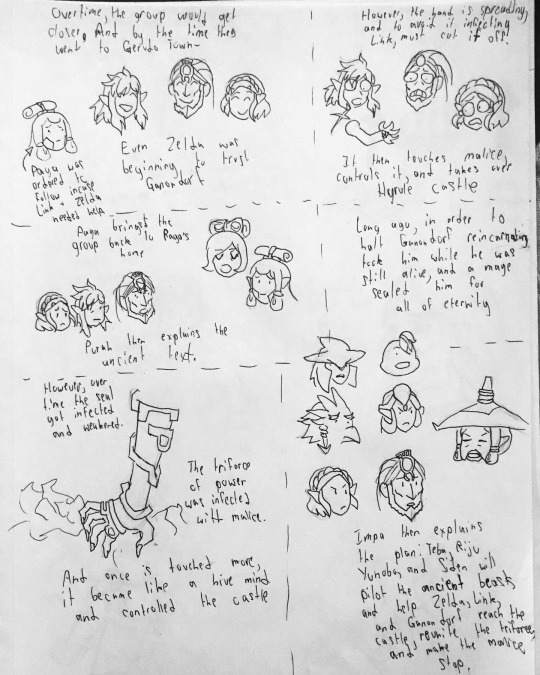 Overtime, the group would get
closer, And by the time they
went to Gerudo Town-
Even Zelda was
beginning to trust
Ganondorf
Paya was
ordered to
follow incase
Link & Zelda
needed help
However, the hand is spreading,
and to avoid it infecting
Link, must cut it off!
It then touches malice,
controls it, and takes over
Hyrule Castle
Paya brings the
group back to Paya's
home
Purah then explains the
ancient text.
Long ago, in order to
halt Ganondorf reincarnating,
took him while he was
still alive, and a mage
sealed him for
all of eternity
However, over
time the seal
got infected
and weakened.
The triforce
of power
was infected
with malice.
And once is touched more,
it became like a hive mind
and controlled the castle
Impa then explains
the plan: Teba, Riju
Yunobo, and Sidon will
pilot the ancient beasts
and help Zelda, Link,
and Ganondorf reach the
castle, reunite the triforces,
and make the malice
stop.